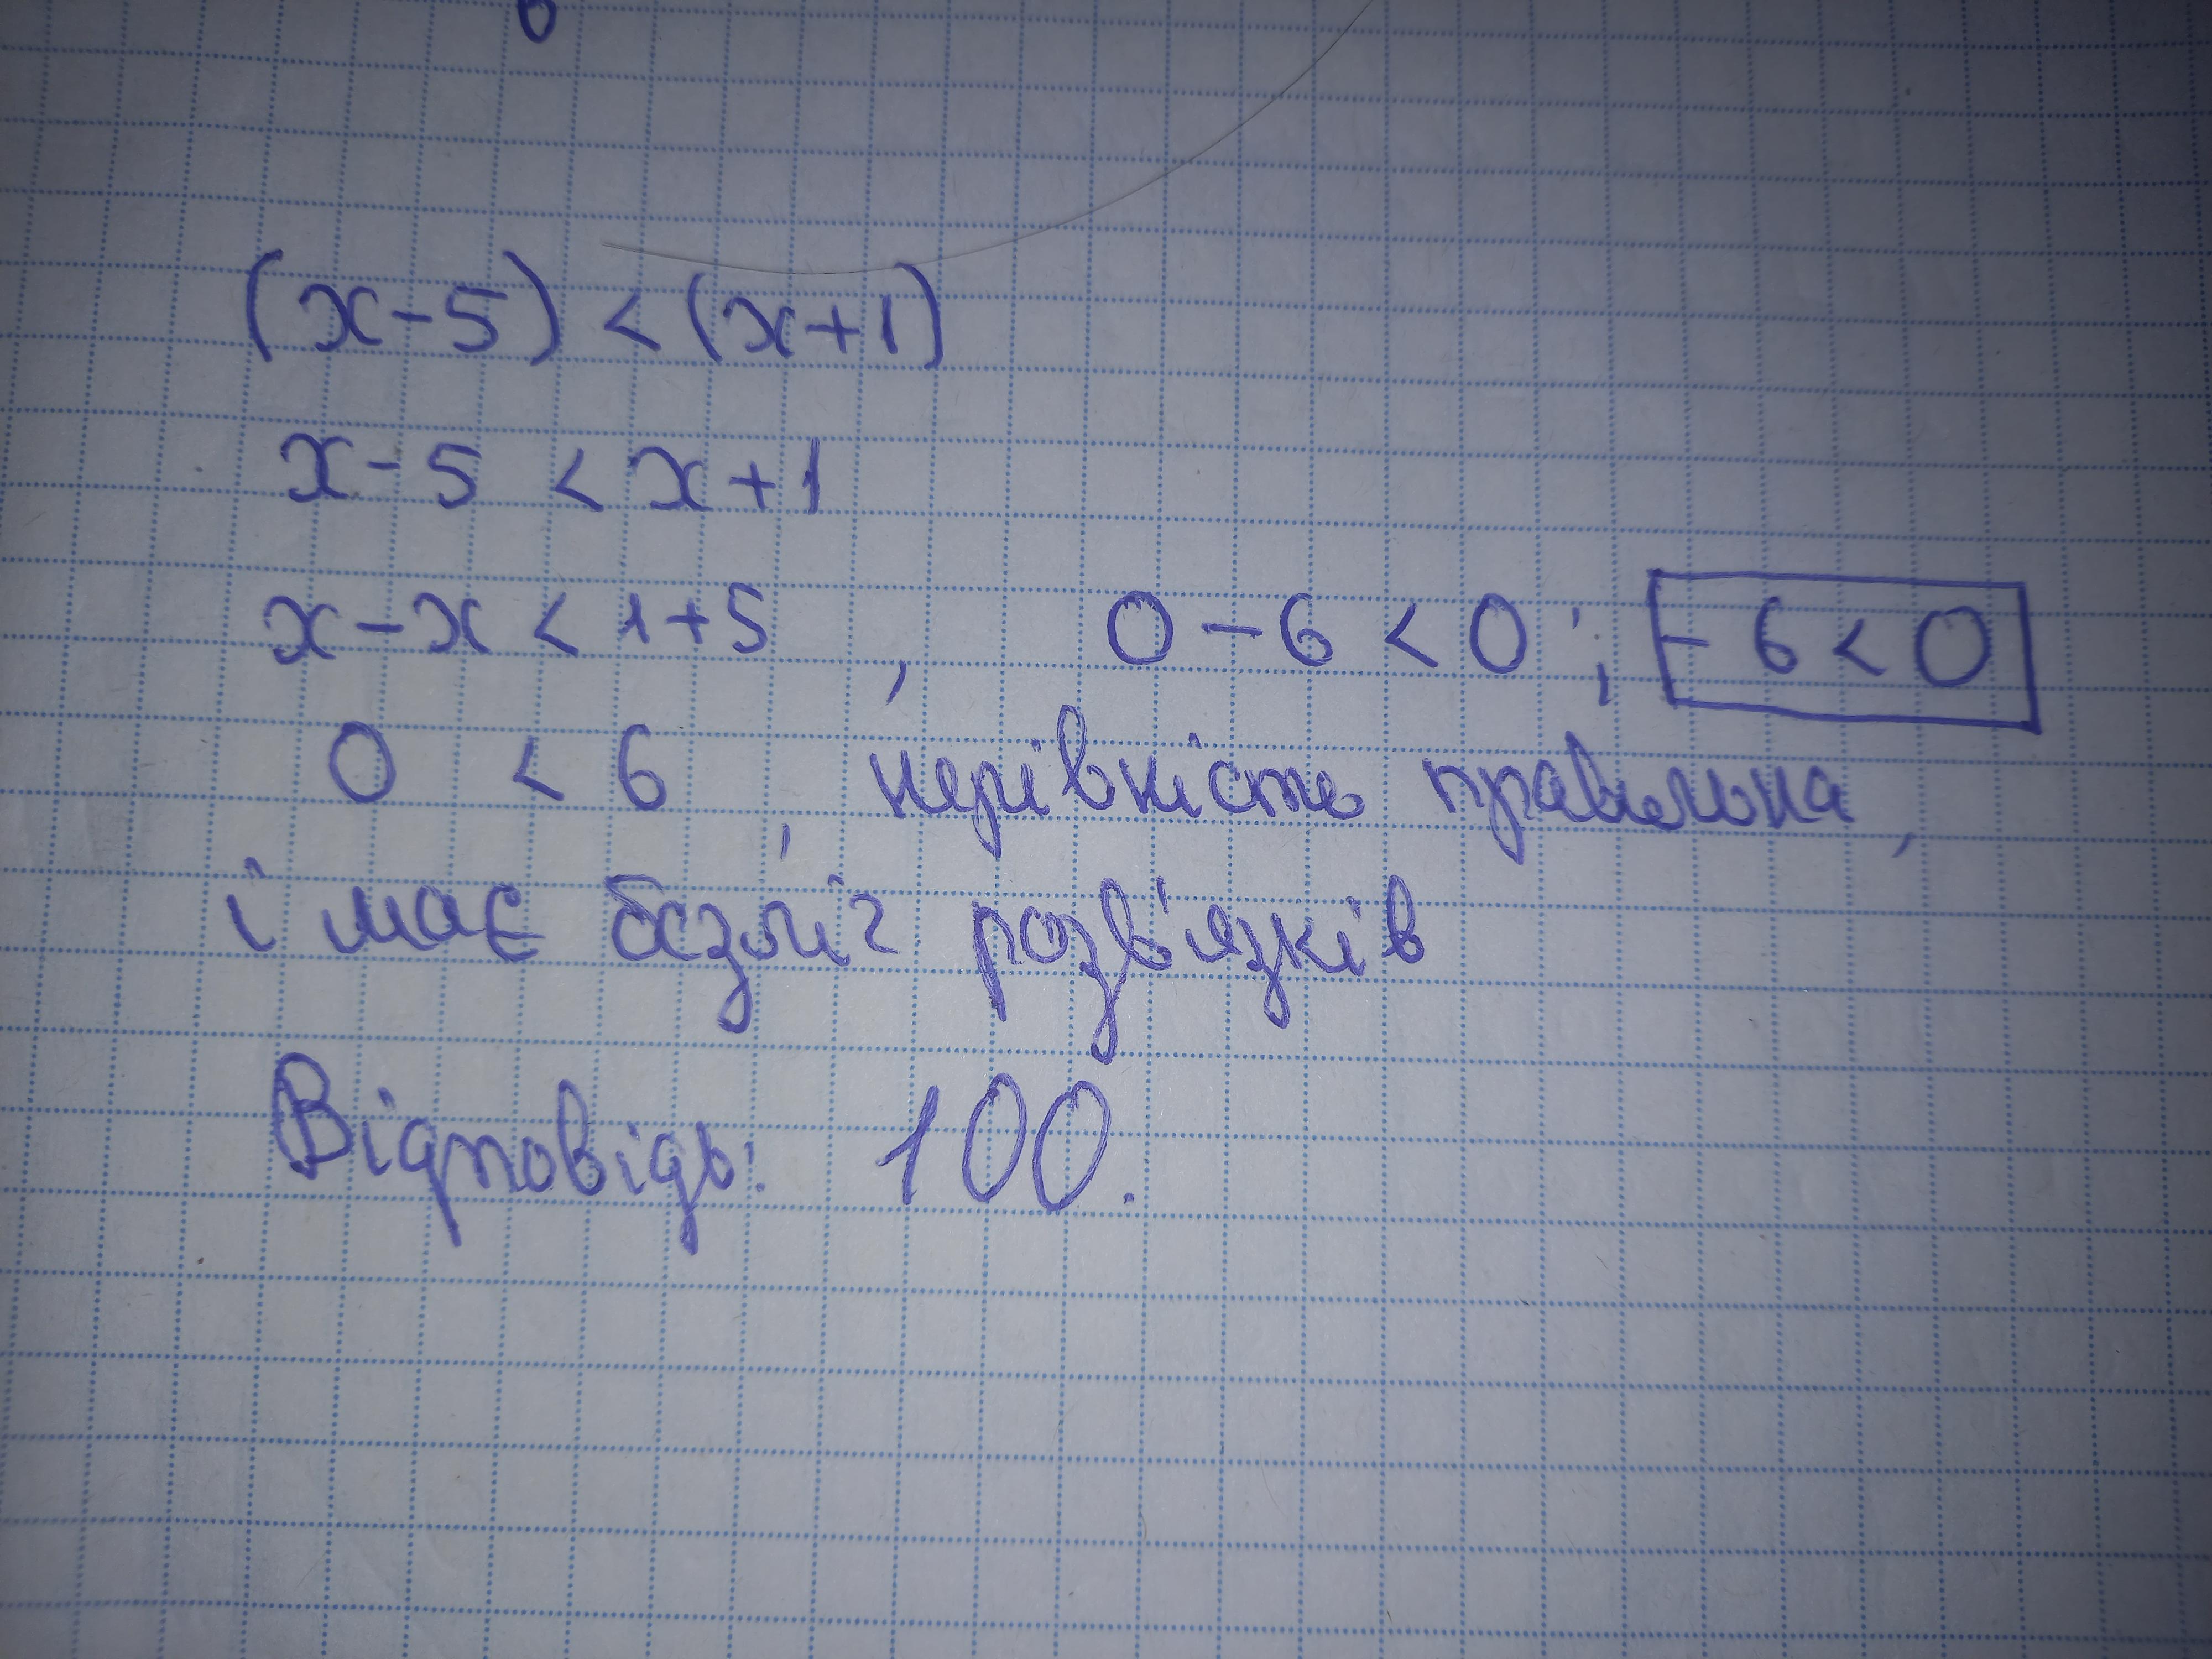 (x-5) < (x+1)
x-5 < x+1
x-x < 1+5 , 0-6 < 0 ; -6 < 0
0 < 6 , нерівність правильна,
і має безліч розв'язків
Відповідь: 100.